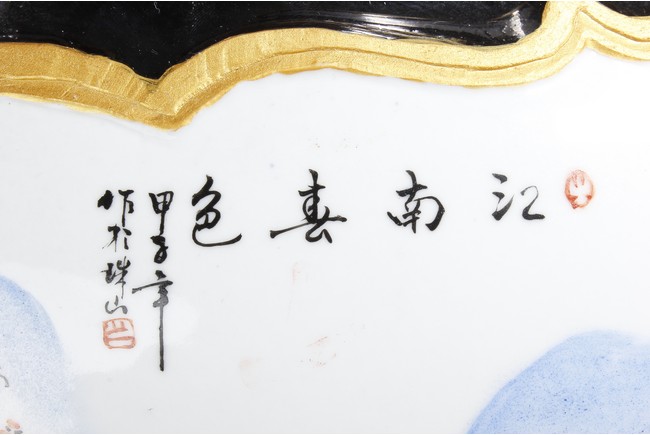 江南春色
甲子年
作於珠山